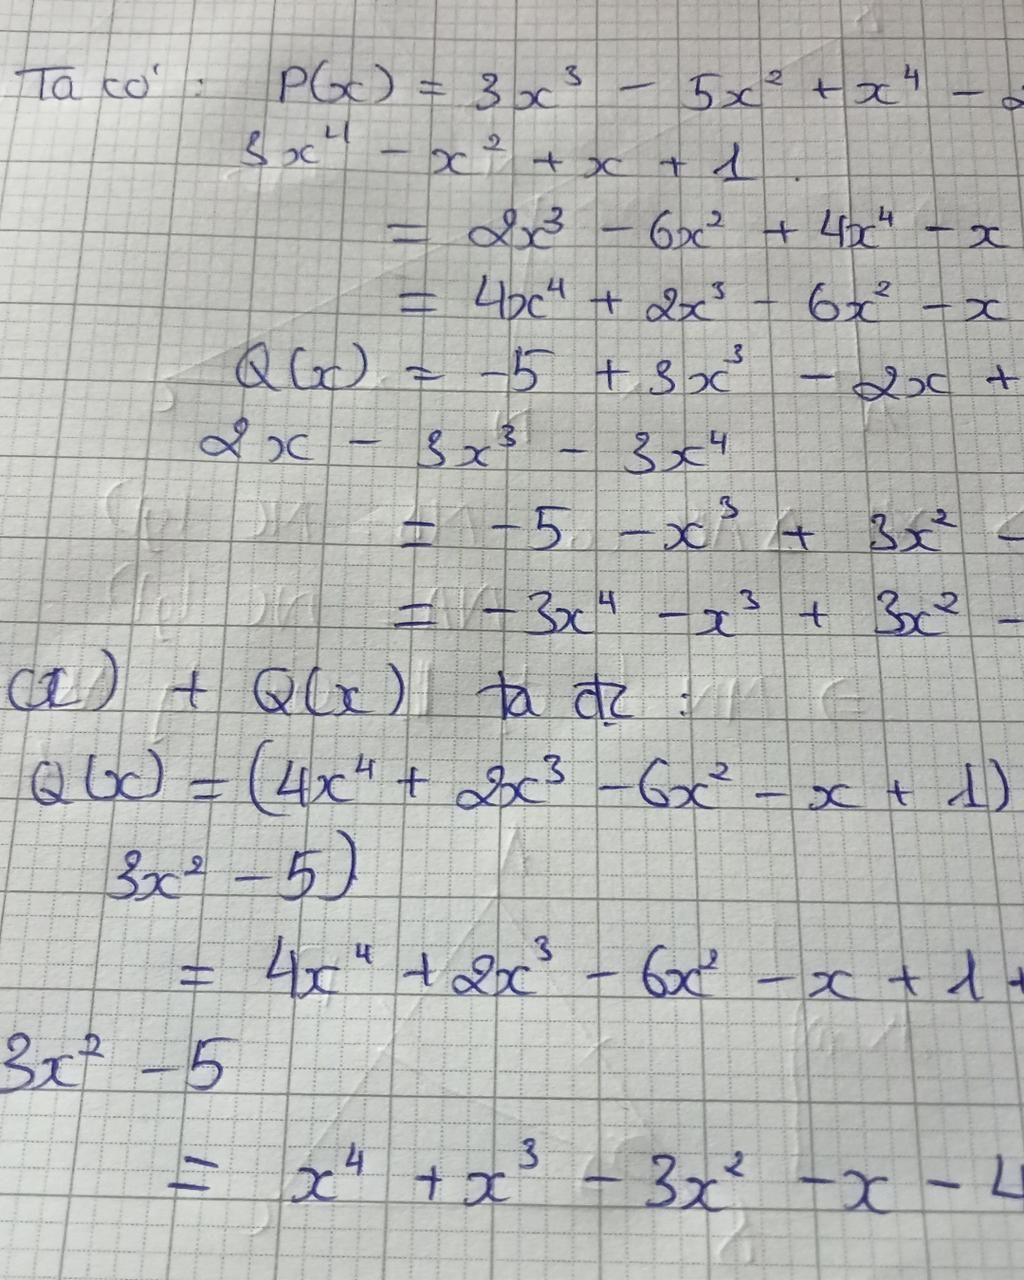 Ta có : P(x) = 3x³ - 5x² + x⁴ - 2
3x⁴ - x² + x + 1 .
= 2x³ - 6x² + 4x⁴ - x
= 4x⁴ + 2x³ - 6x² - x
Q(x) = -5 + 3x³ - 2x +
2x - 3x³ - 3x⁴
= -5 - x³ + 3x² -
= -3x⁴ - x³ + 3x² -
(x) + Q(x) ta đc :
Q(x) = (4x⁴ + 2x³ - 6x² - x + 1)
3x² - 5)
= 4x⁴ + 2x³ - 6x² - x + 1 +
3x² - 5
= x⁴ + x³ - 3x² - x - 4